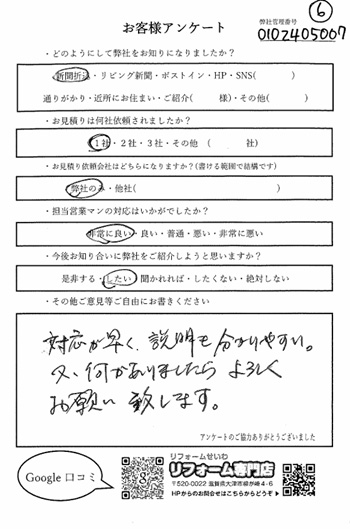 ⑥
お客様アンケート
弊社管理番号
0102405007
・どのようにして弊社をお知りになりましたか？
新聞折込・リビング新聞・ポストイン・HP・SNS(　　　)
通りがかり・近所にお住まい・ご紹介(　　　様)・その他(　　　)
・お見積りは何社依頼されましたか？
1社・2社・3社・その他　(　　　社)
・お見積り依頼会社はどちらになりますか？(書ける範囲で結構です)
弊社のみ・他社(　　　)
・担当営業マンの対応はいかがでしたか？
非常に良い・良い・普通・悪い・非常に悪い
・今後お知り合いに弊社をご紹介しようと思いますか？
是非する・したい・聞かれれば・したくない・絶対しない
・その他ご意見等ご自由にお書きください
対応が早く、説明も分かりやすい。
又、何かありましたら よろしく
お願い 致します。
アンケートのご協力ありがとうございました
Google 口コミ
リフォームせいわ
リフォーム専門店
〒520-0022 滋賀県大津市柳が崎4-6
HPからのお問合せはこちらからどうぞ